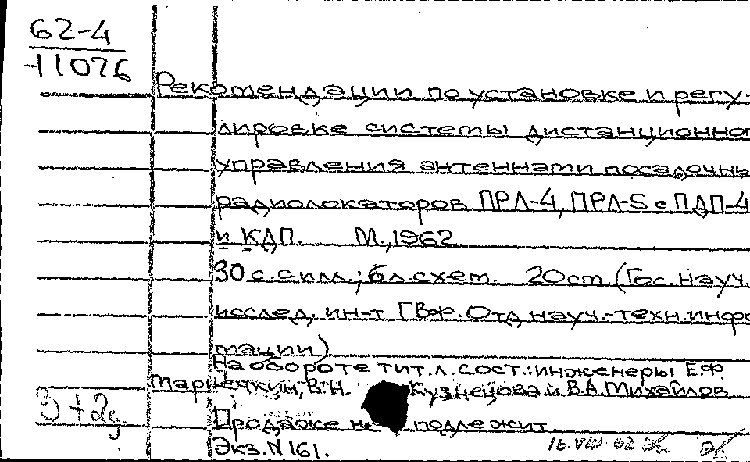 62-4
11076
Рекомендации по установке и регу-
лировке системы дистанционно
управления антеннами посадочны
радиолокаторов ПРЛ-4, ПРЛ-5 с ПДП-4
и КДП. М., 1962
30 с. с илл.; 6 л. схем. 20 cm (Гос. науч.
исслед. ин-т ГВФ. Отд науч.-техн. инфо
мации)
На обороте тит. л. сост.: инженеры Е.Ф.
В.Н. Кузнецова и В.А. Михайлов
Продаже не подлежит
Экз. N 161.
3+2д